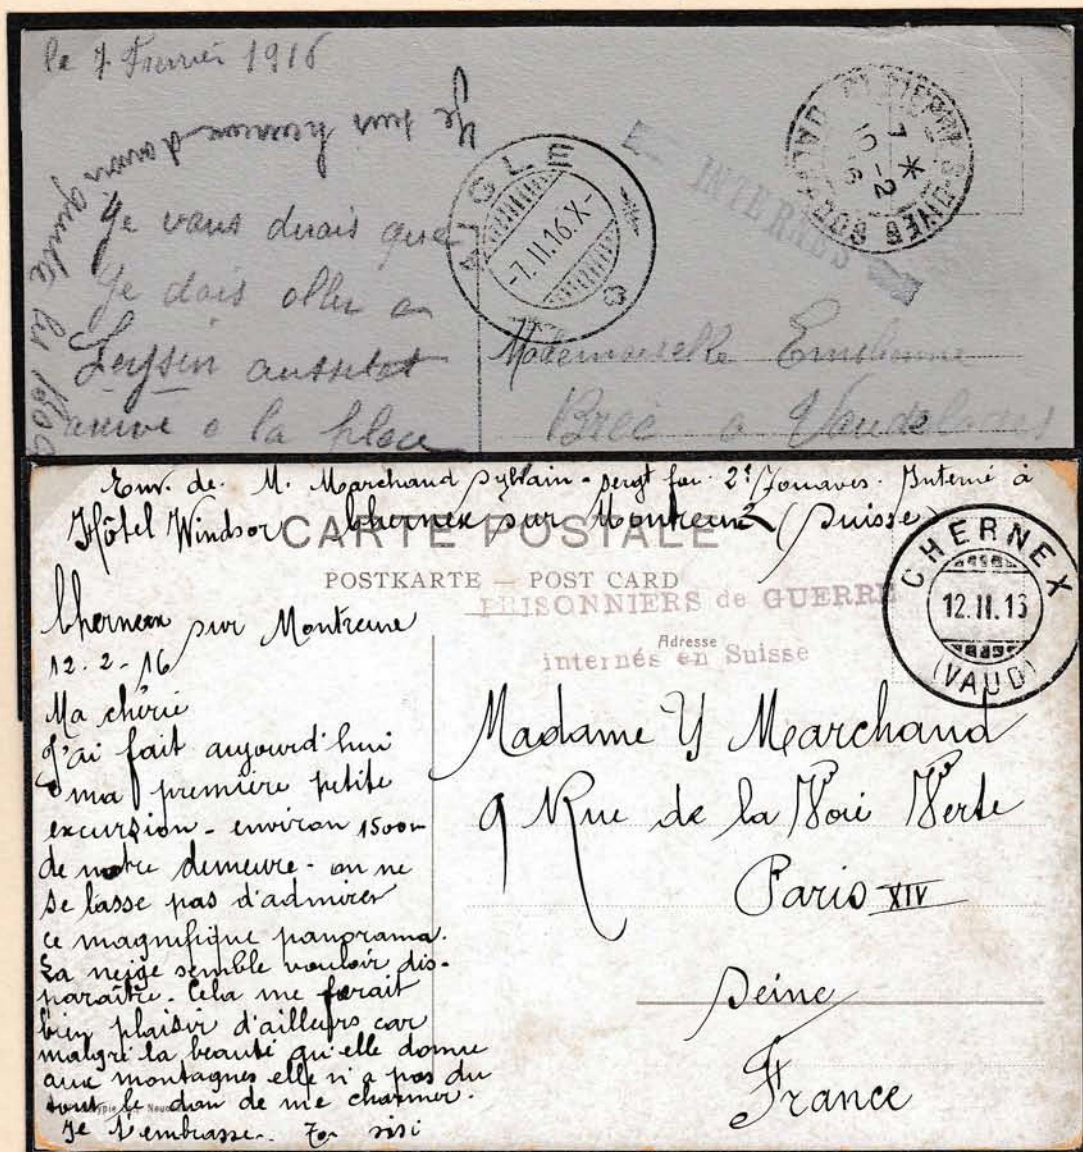 le 7 Fevrier 1916
Je suis
Je vous dirais que
Je dois aller a
Leysin aussitot
arrivé a la place
AIGLE
-7.II.16.X-
INTERNES
7 * -2
16
Mademoiselle Emelienne
Brec a
Env. de. M. Marchand Sylvain - sergt four. 2e Zouaves. Interné à
Hôtel Windsor Chernex sur Montreux (Suisse)
CARTE POSTALE
POSTKARTE — POST CARD
PRISONNIERS de GUERRE
Adresse
internés en Suisse
CHERNEX
12.II.16
(VAUD)
Chernex sur Montreux
12.2-16
Ma chérie
J'ai fait aujourd'hui
ma première petite
excursion - environ 1500m
de notre demeure - on ne
se lasse pas d'admirer
ce magnifique panorama.
La neige semble vouloir dis-
paraître. Cela me ferait
bien plaisir d'ailleurs car
malgré la beauté qu'elle donne
aux montagnes elle n'a pas du
tout le don de me charmer.
Je t'embrasse. Ton sisi
Madame Y Marchand
9 Rue de la Voie Verte
Paris XIV
Seine
France